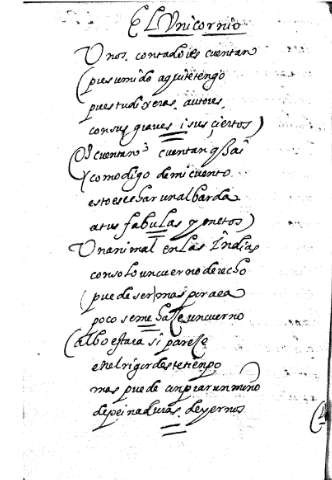 El Unicornio
Unos contadores cuentan
(pues umido aqui tetengo
pues tudixeras, autores,
con sus graues i sus ciertos)
cuentan, cuentan q̃ hai
y como digo de mi cuento
esto es echar un albarda
a tus fabulas y metos)
Un animal en las Indias
con solo un cuerno derecho
(puede ser) mas para ca
poco se me haze un cuerno
(albo estara si pareze
en el rigor deste tienpo
mas puede linpiar un
de peinaduras de yernos